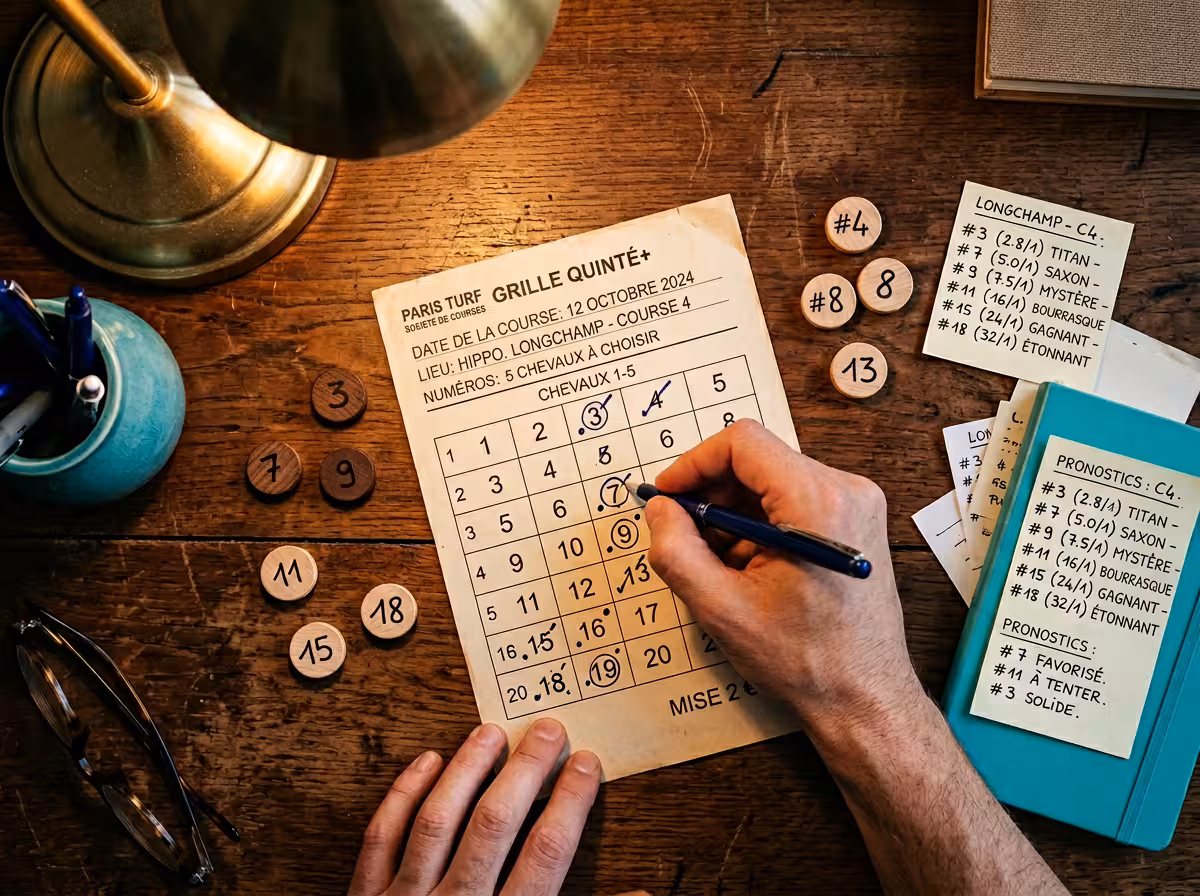 PARIS TURF
SOCIETE DE COURSES
GRILLE QUINTÉ+
DATE DE LA COURSE: 12 OCTOBRE 2024
LIEU: HIPPO. LONGCHAMP - COURSE 4
NUMÉROS: 5 CHEVAUX À CHOISIR
CHEVAUX 1-5
1 1 2 3 4 5
2 3 4 6
3 5 6 7
4 9 10 9
5 11 12 13
16 15 16 17
20 18 19 20
MISE 2 €
3
7
9
11
18
15
#4
#8
8
13
LONGCHAMP - C4:
#3 (2.8/1) TITAN -
#7 (5.0/1) SAXON -
#9 (7.5/1) MYSTÈRE -
#11 (16/1) BOURRASQUE
#15 (24/1) GAGNANT -
#18 (32/1) ÉTONNANT
PRONOSTICS : C4.
#3 (2.8/1) TITAN -
#7 (5.0/1) SAXON -
#9 (7.5/1) MYSTÈRE -
#11 (16/1) BOURRASQUE
#15 (24/1) GAGNANT -
#18 (32/1) ÉTONNANT
PRONOSTICS :
#7 FAVORISÉ.
#11 À TENTER.
#3 SOLIDE.